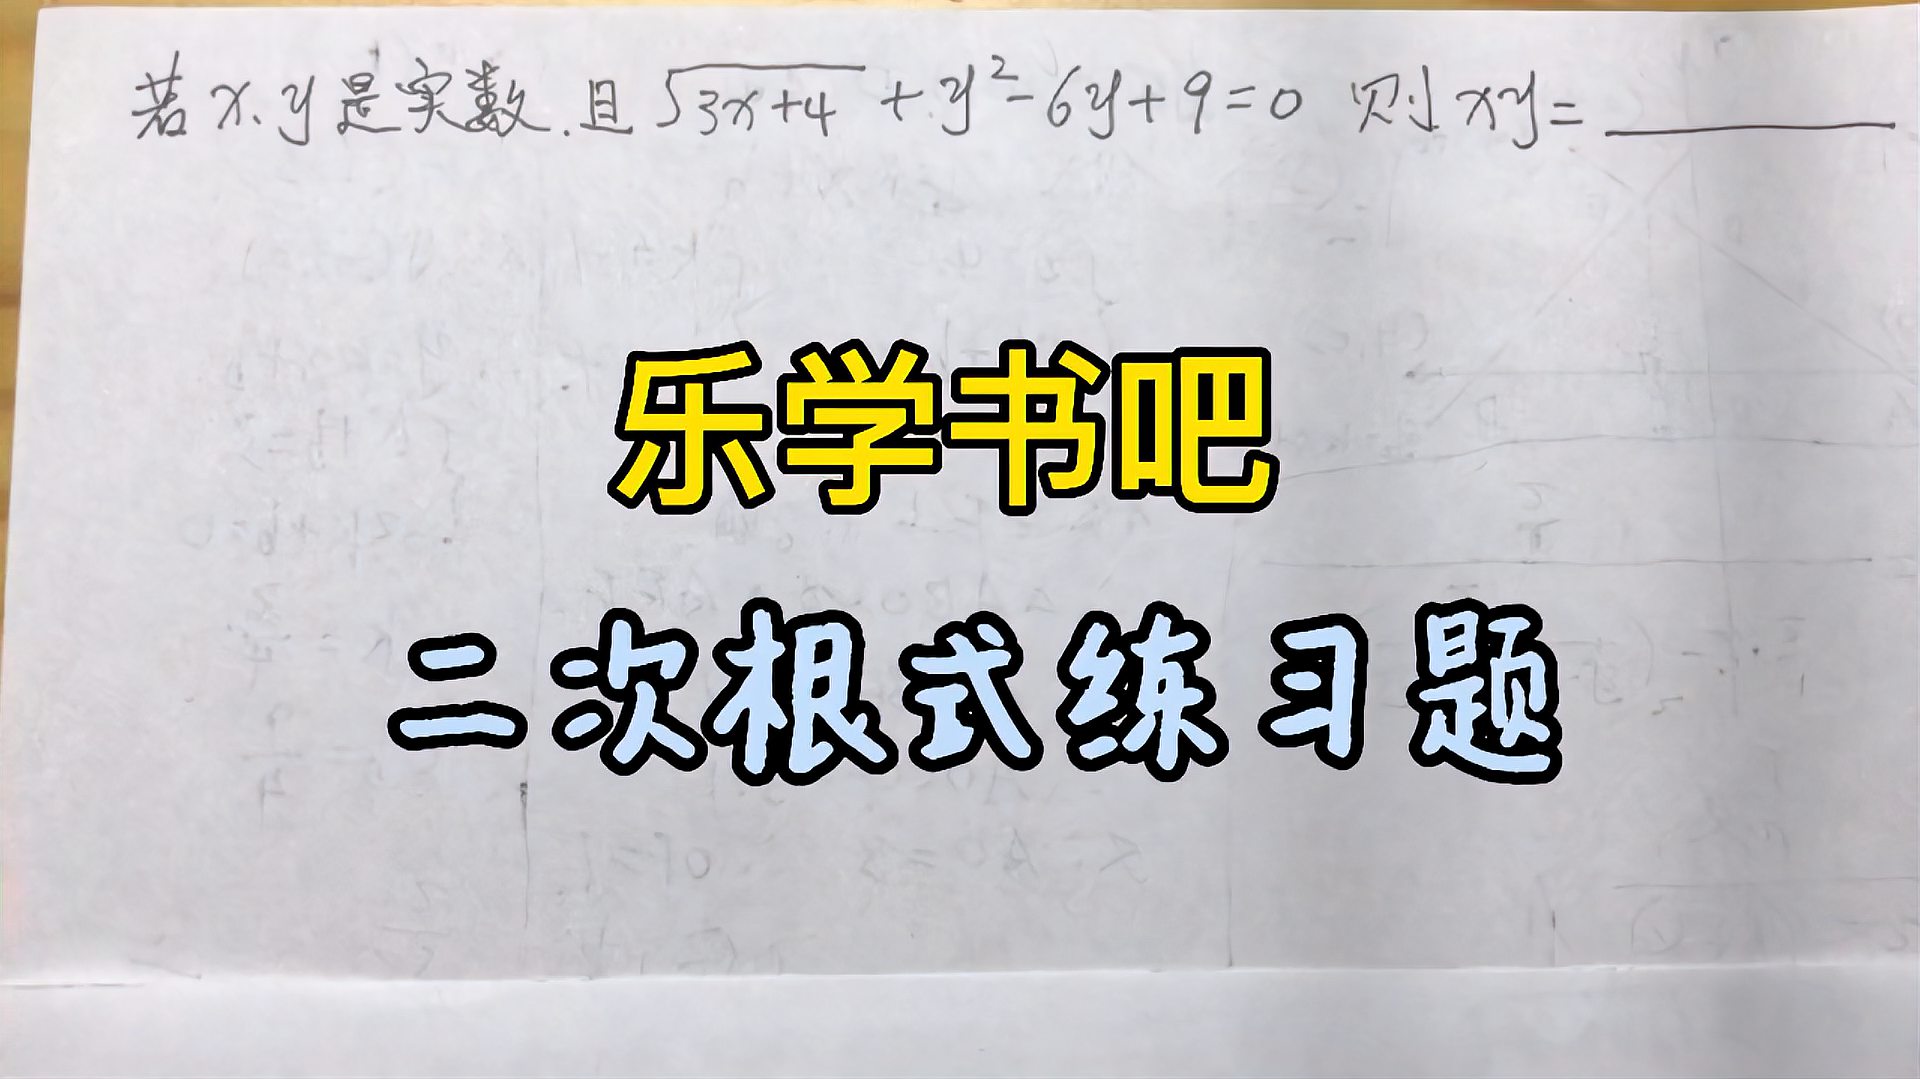 若x、y是实数.且√3x+4 + y²-6y+9=0 则xy=______
乐学书吧
二次根式练习题